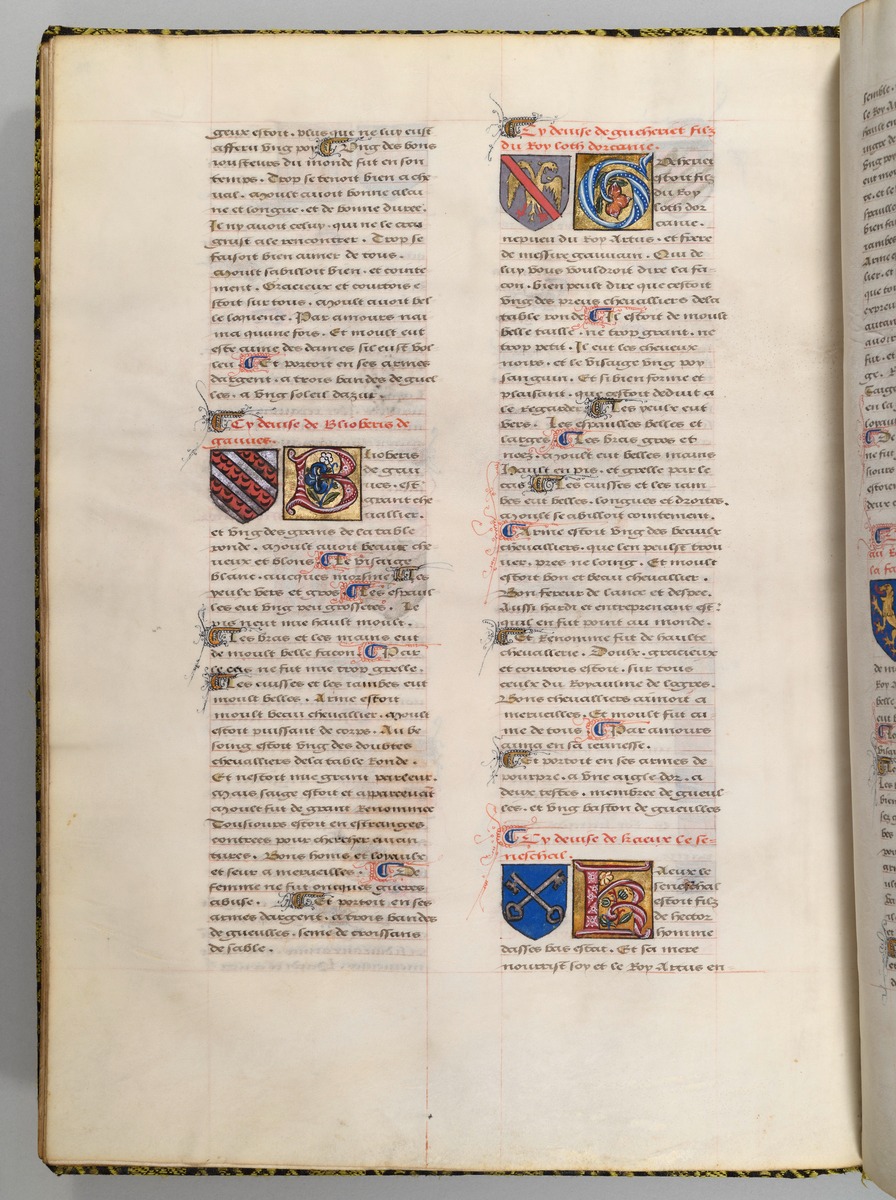 geux estoit. plus que ne luy eust
afferu vng poy Vng des bons
iousteurs du monde fut en son
temps. Trop se tenoit bien a che
ual. Moult auoit bonne alai
ne et longue. et de bonne duree.
Il ny auoit celuy. qui ne le crai
gnist a le rencontrer. Trop se
faisoit bien aimer de tous.
Moult sabilloit bien. et cointe
ment. Gracieux et courtois e
stoit sur tous. Moult auoit bel
le loquence. Par amours nai
ma quune fois. Et moult eut
este aime des dames sil eust vol
leu Et portoit en ses armes
dargent. a trois bandes de gueul
les. a vng soleil dazur.
Cy deuise de Blioberis de
gauues.
Blioberis
de gau
ues. est.
grant che
uallier.
et vng des grans de la table
ronde. Moult auoit beaux che
ueux et blons Le visaige
blanc. aucques Les
yeulx vers et gros Les espaul
les eut vng peu grossetes. Le
pis neut mie hault moult.
Les bras et les mains eut
de moult belle facon. Par
le cas ne fut mie trop gresle.
Les cuisses et les iambes eut
moult belles. Arme estoit
moult beau cheuallier. Moult
estoit puissant de corps. Au be
soing estoit vng des doubtes
cheualliers de la table Ronde.
Et nestoit mie grant parleur.
Mais saige estoit et apparceuant
Moult fut de grant Renommee
Tousiours estoit en estranges
contrees pour chercher auan
tures. Bons homs et loyaulx
et seur a merueilles. De
femme ne fut oncques gueres
abuse. Et portoit en ses
armes dargent. a trois bandes
de gueulles. seme de croissans
de sable.
Cy deuise de gueheriet filz
du Roy loth dorcanie.
Gueheriet
estoit filz
du Roy
loth dor
canie.
nepueu du Roy Artus. et frere
de messire gauuain. Qui de
luy vous vouldroit dire la fa
con. bien peult dire que cestoit
vng des preus cheualliers dela
table ronde Il estoit de moult
belle taille. ne trop grant. ne
trop petit. Il eut les cheueux
noirs. et le visaige vng poy
sanguin. Et si bien forme et
plaisant. que cestoit deduit a
le regarder Les yeulx eut
vers. Les espaulles belles et
larges Les bras gros et
noez. Moult eut belles mains
Hault en pis. et gresle par le
cas Les cuisses et les iam
bes eut belles. longues et droites.
Moult se abilloit cointement.
Arme estoit vng des beaulx
cheualliers. que len peulst trou
uer. pres ne loing. Et moult
estoit bon et beau cheuallier.
Bon fereur de lance et despee.
Aussi hardi et entreprenant est.
quil en fut point au monde.
Et Renomme fut de haulte
cheuallerie. Doulx. gracieux
et courtois estoit. sur tous
ceulx du Royaulme de logres.
Bons cheualliers aimoit a
merueilles. Et moult fut ai
me de tous Par amours
aima en sa ieunesse.
Et portoit en ses armes de
pourpre. a vne aigle dor. a
deux testes. membree de gueul
les. et vng baston de gueulles
Cy deuise de keux le se-
neschal.
Keux le
seneschal
estoit filz
de hector
homme
dasses bas estat. Et sa mere
nourrist soy et le Roy Artus en